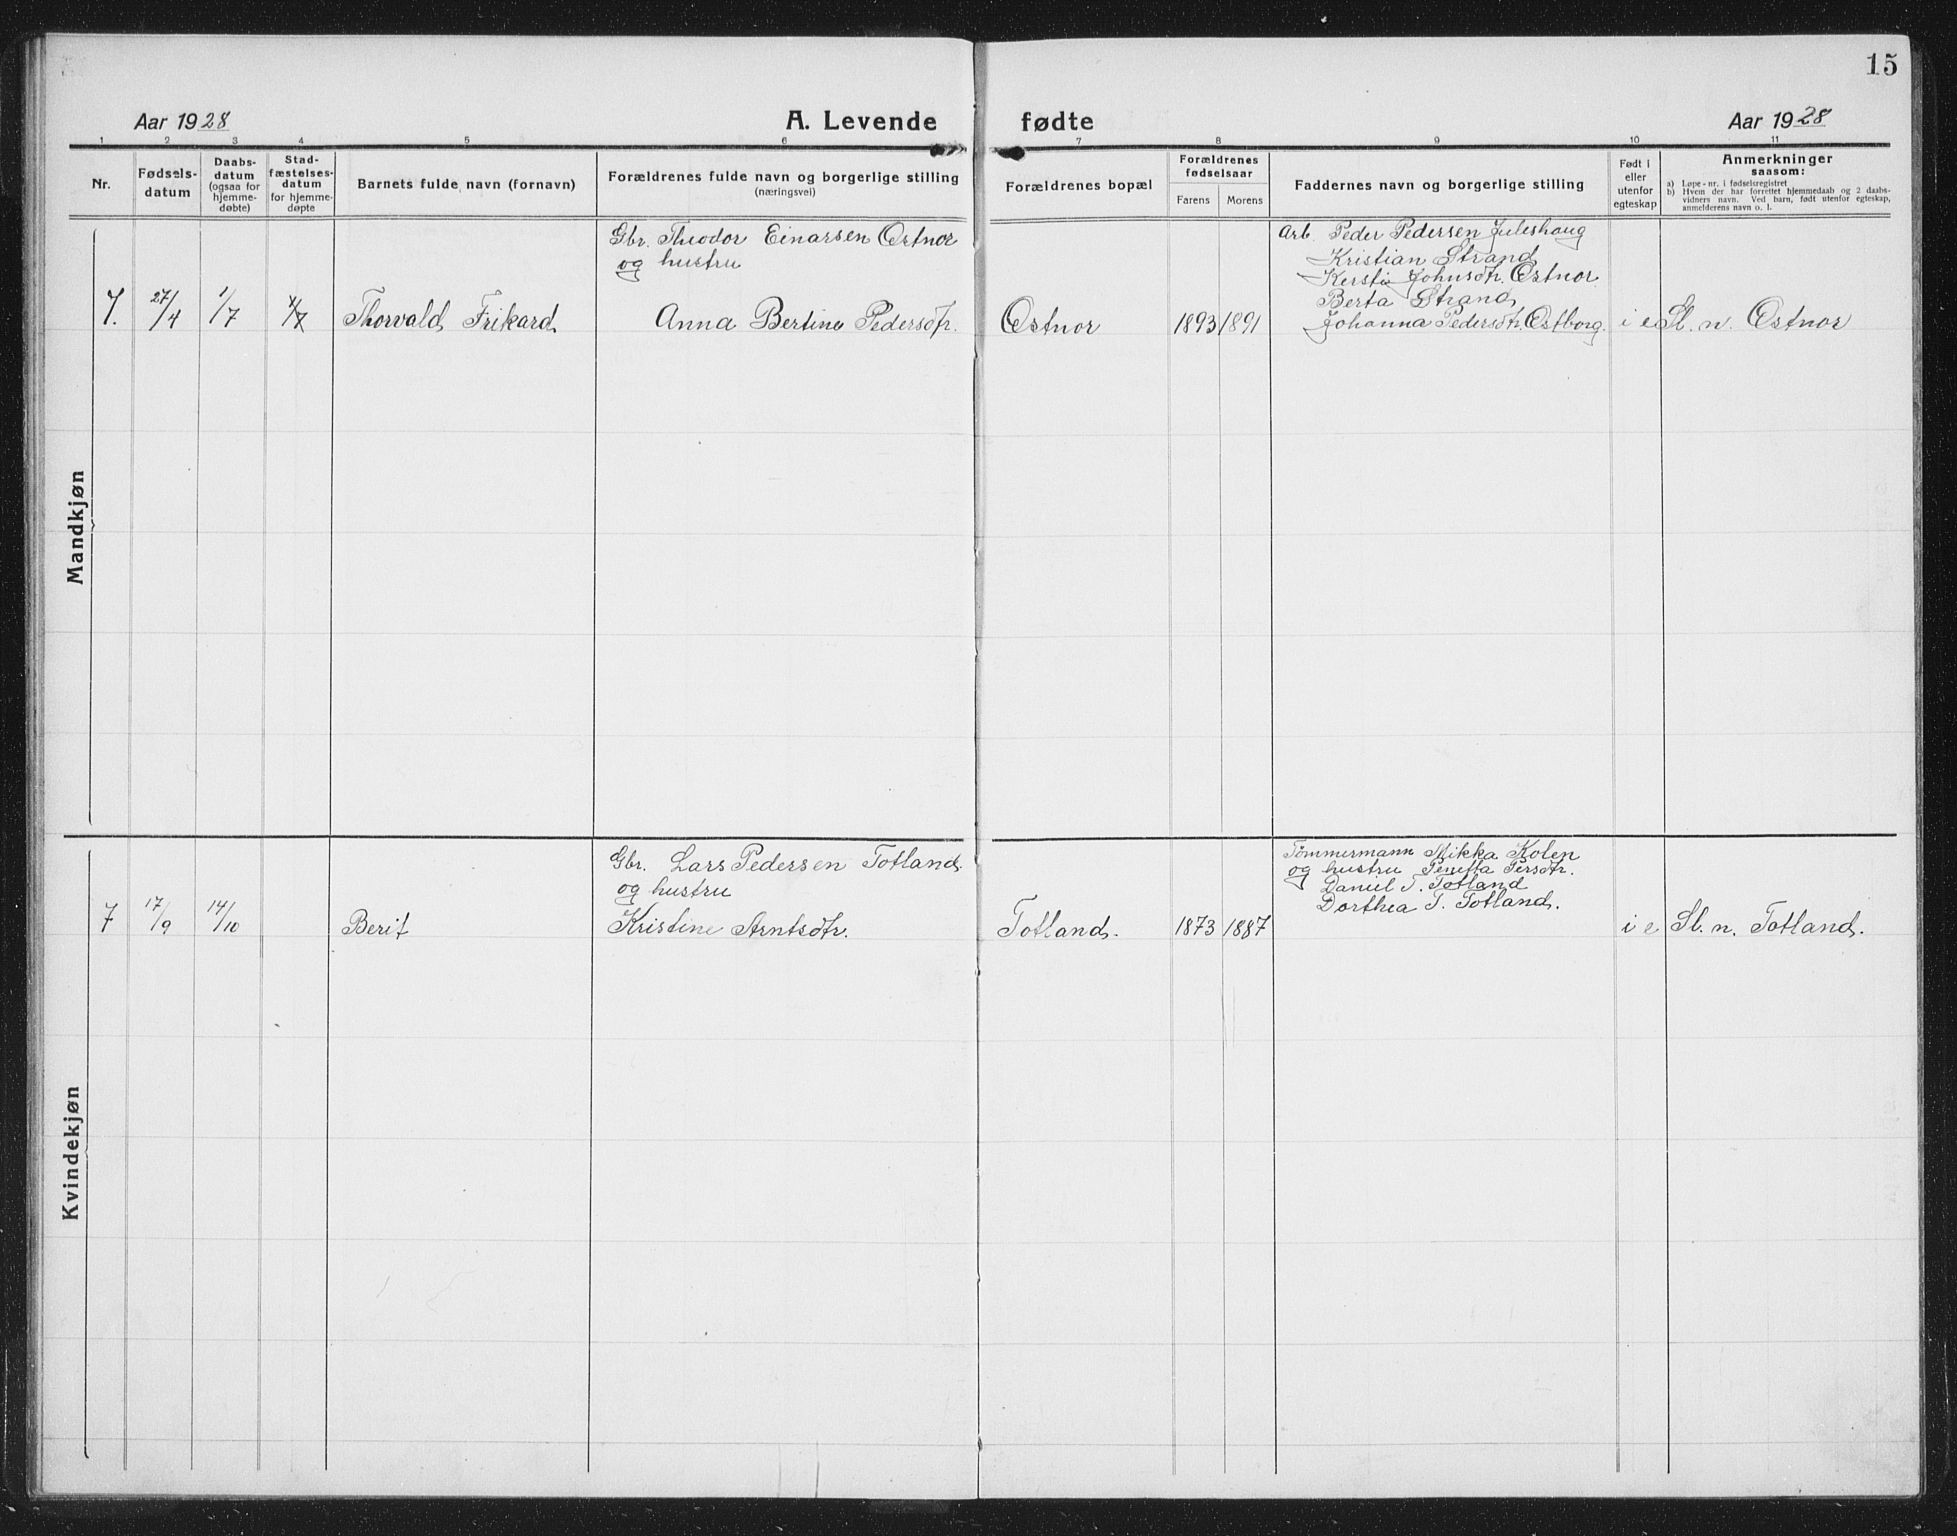 15
Aar 1928
A. Levende fødte
Aar 1928
1 2 3 4 5 6 7 8 9 10 11
Nr.
Fødsels-
datum
Daabs-
datum
(ogsaa for
hjemme-
døbte)
Stad-
fæstelses-
datum
for hjemme-
døpte
Barnets fulde navn (fornavn)
Forældrenes fulde navn og borgerlige stilling
(næringsvei)
Forældrenes bopæl
Forældrenes
fødselsaar
Farens Morens
Faddernes navn og borgerlige stilling
Født i
eller
utenfor
egteskap
Anmerkninger
saasom:
a) Løpe-nr. i fødselsregistret
b) Hvem der har forrettet hjemmedaab og 2 daabs-
vidners navn. Ved barn, født utenfor egteskap,
anmelderens navn o. l.
Mandkjøn
7. 27/4 1/7 1/7 Thorvald Frikard
Gbr. Theodor Einarsen Ostnor
og hustru
Anna Bertine Pedersdtr.
Ostnor 1893 1891
Arb. Peder Pedersen Juleshaug
Kristian Strand
Kersti Johnsdtr. Ostnor
Berta Strand
Johanna Pedersdtr. Ostborg.
i e Sl. n. Ostnor
Kvindekjøn
7 17/9 14/10 Berit
Gbr. Lars Pedersen Totland.
og hustru
Kristine Arntsdtr.
Totland. 1873 1887
Tömmermann Mikka Kolen
og hustru Penetta Persdtr.
Daniel T. Totland
Dorthea T. Totland.
i e Sl. n. Totland.